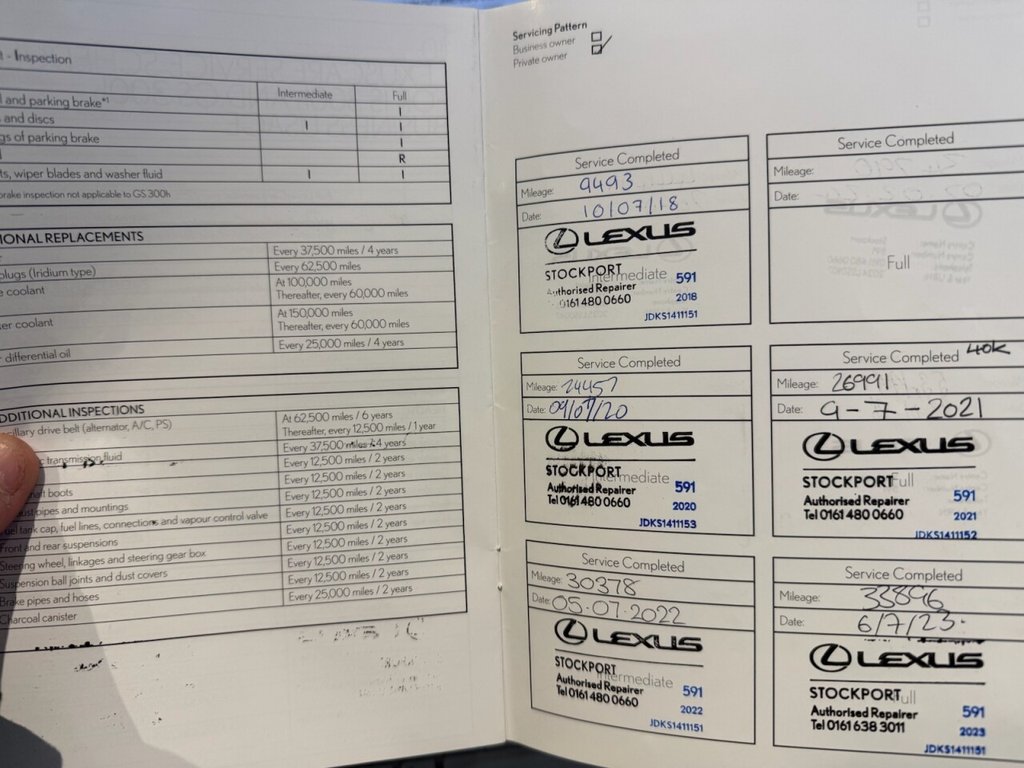 - Inspection
Intermediate Full
l and parking brake*¹ I
and discs I I
gs of parking brake I
R
ts, wiper blades and washer fluid I I
brake inspection not applicable to GS 300h
IONAL REPLACEMENTS
Every 37,500 miles / 4 years
plugs (Iridium type) Every 62,500 miles
e coolant At 100,000 miles
Thereafter, every 60,000 miles
er coolant At 150,000 miles
Thereafter, every 60,000 miles
differential oil Every 25,000 miles / 4 years
DDITIONAL INSPECTIONS
cillary drive belt (alternator, A/C, PS) At 62,500 miles / 6 years
Thereafter, every 12,500 miles / 1 year
transmission fluid Every 37,500 miles / 4 years
Every 12,500 miles / 2 years
aft boots Every 12,500 miles / 2 years
ust pipes and mountings Every 12,500 miles / 2 years
Fuel tank cap, fuel lines, connections and vapour control valve Every 12,500 miles / 2 years
Front and rear suspensions Every 12,500 miles / 2 years
Steering wheel, linkages and steering gear box Every 12,500 miles / 2 years
Suspension ball joints and dust covers Every 12,500 miles / 2 years
Brake pipes and hoses Every 12,500 miles / 2 years
Charcoal canister Every 25,000 miles / 2 years
Servicing Pattern
Business owner
Private owner
Service Completed
Mileage: 9493
Date: 10/07/18
LEXUS
STOCKPORT Intermediate
Authorised Repairer 591
0161 480 0660 2018
JDKS1411151
Service Completed
Mileage:
Date:
Full
Service Completed
Mileage: 24457
Date: 09/07/20
LEXUS
STOCKPORT Intermediate
Authorised Repairer 591
Tel 0161 480 0660 2020
JDKS1411153
Service Completed 40K
Mileage: 26991
Date: 9-7-2021
LEXUS
STOCKPORT Full
Authorised Repairer 591
Tel 0161 480 0660 2021
JDKS1411152
Service Completed
Mileage: 30378
Date: 05.07.2022
LEXUS
STOCKPORT Intermediate
Authorised Repairer 591
Tel 0161 480 0660 2022
JDKS1411151
Service Completed
Mileage: 33896
Date: 6/7/23.
LEXUS
STOCKPORT Full
Authorised Repairer 591
Tel 0161 638 3011 2023
JDKS1411151